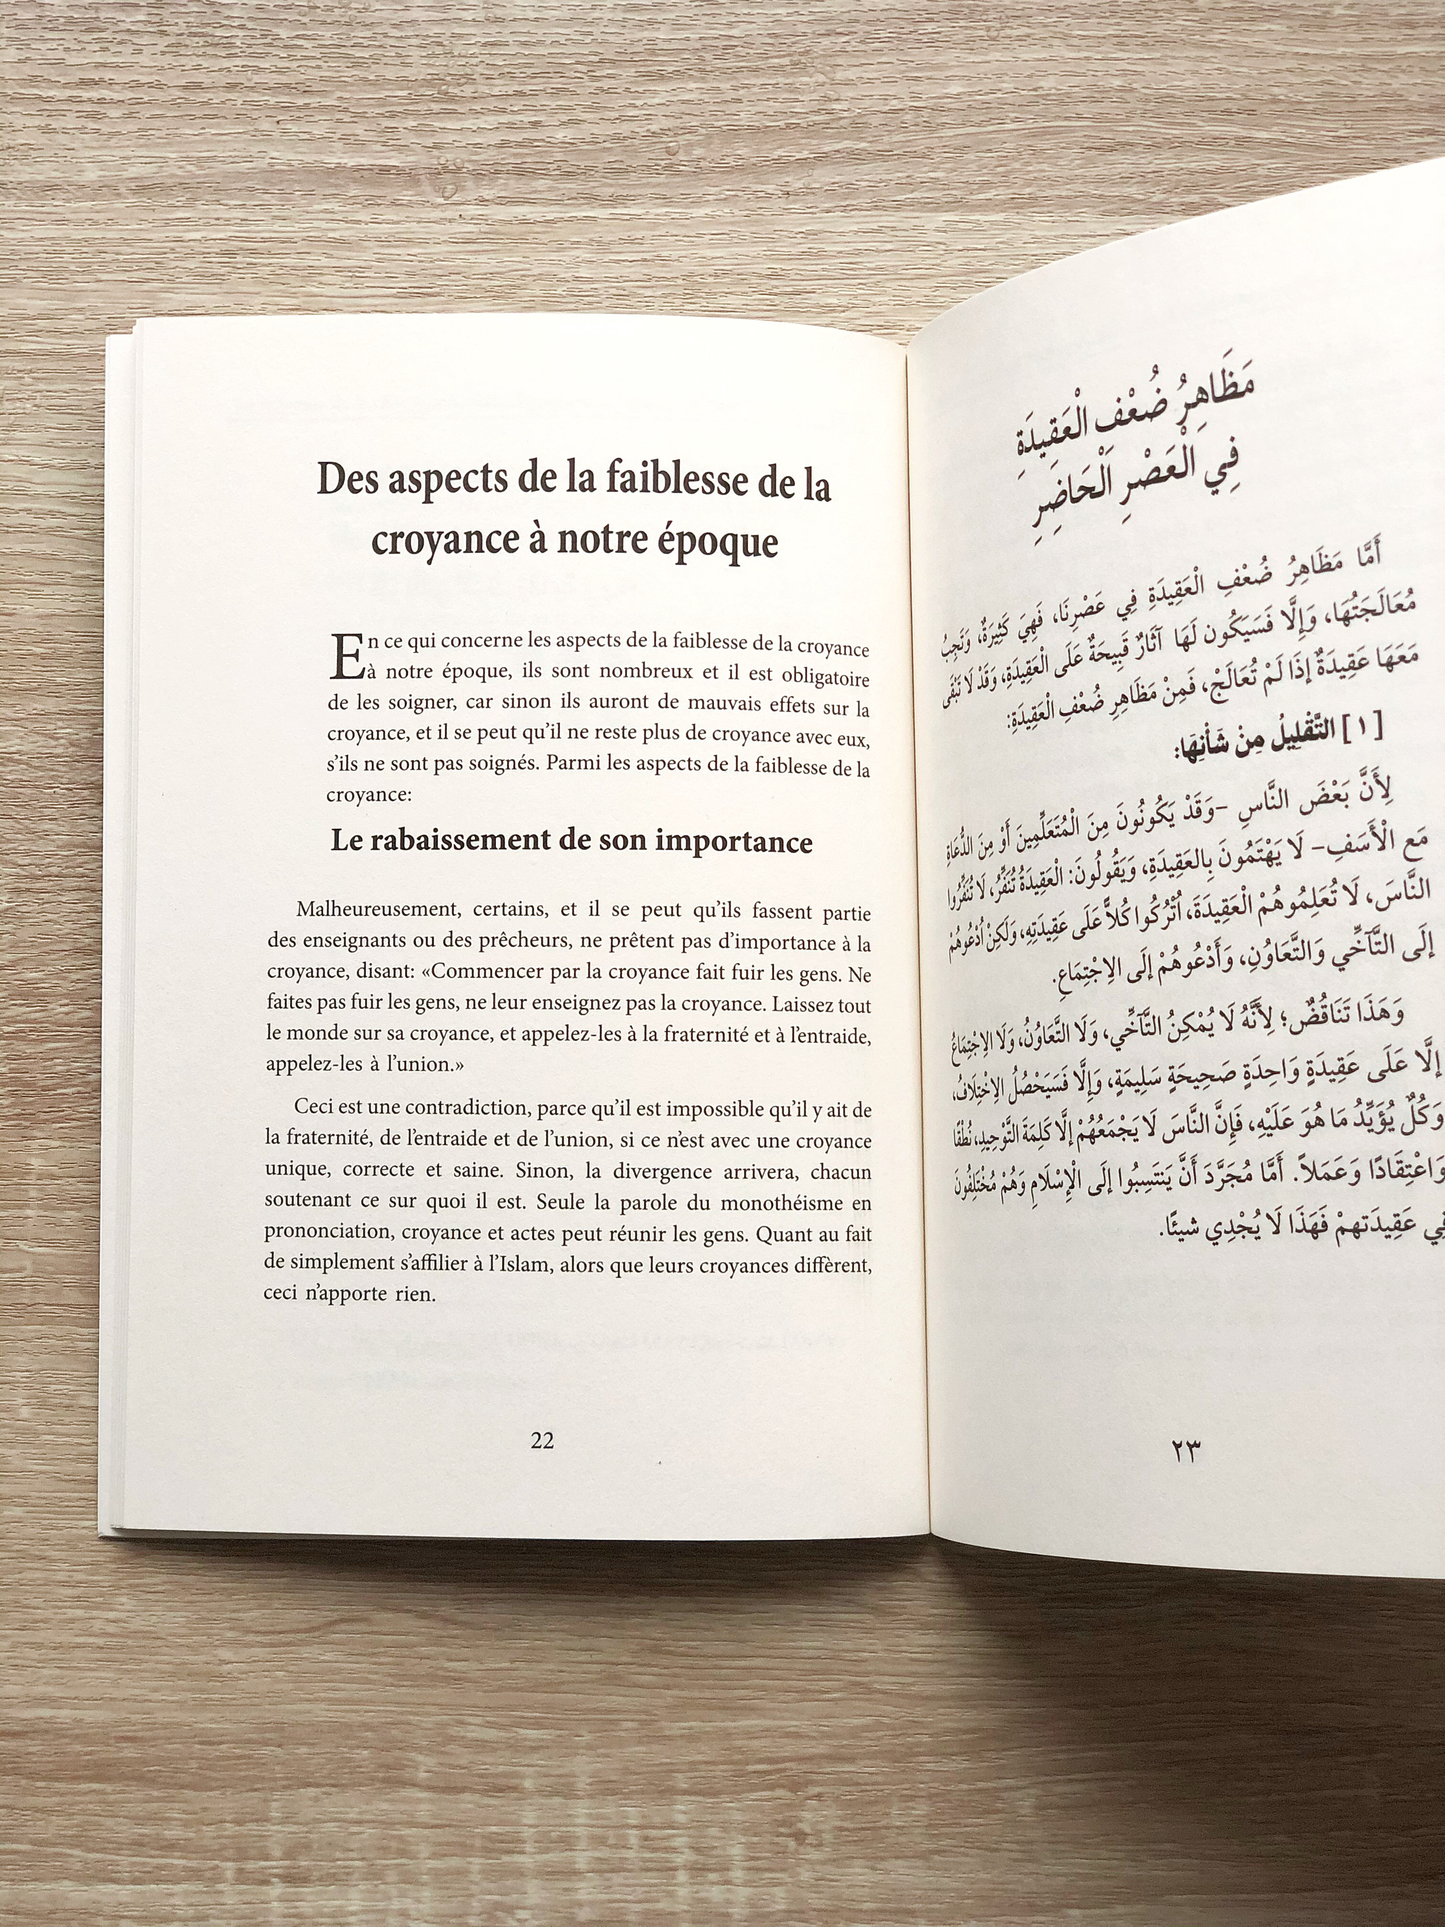 Des aspects de la faiblesse de la
croyance à notre époque
En ce qui concerne les aspects de la faiblesse de la croyance
à notre époque, ils sont nombreux et il est obligatoire
de les soigner, car sinon ils auront de mauvais effets sur la
croyance, et il se peut qu'il ne reste plus de croyance avec eux,
s'ils ne sont pas soignés. Parmi les aspects de la faiblesse de la
croyance:
Le rabaissement de son importance
Malheureusement, certains, et il se peut qu'ils fassent partie
des enseignants ou des prêcheurs, ne prêtent pas d'importance à la
croyance, disant: «Commencer par la croyance fait fuir les gens. Ne
faites pas fuir les gens, ne leur enseignez pas la croyance. Laissez tout
le monde sur sa croyance, et appelez-les à la fraternité et à l'entraide,
appelez-les à l'union.»
Ceci est une contradiction, parce qu'il est impossible qu'il y ait de
la fraternité, de l'entraide et de l'union, si ce n'est avec une croyance
unique, correcte et saine. Sinon, la divergence arrivera, chacun
soutenant ce sur quoi il est. Seule la parole du monothéisme en
prononciation, croyance et actes peut réunir les gens. Quant au fait
de simplement s'affilier à l'Islam, alors que leurs croyances diffèrent,
ceci n'apporte rien.
22
مَظَاهِرُ ضُعْفِ الْعَقِيدَةِ
فِي الْعَصْرِ الْحَاضِرِ
أَمَّا مَظَاهِرُ ضُعْفِ الْعَقِيدَةِ فِي عَصْرِنَا، فَهِيَ كَثِيرَةٌ، وَتَجِبُ
مُعَالَجَتُهَا، وَإِلَّا فَسَيَكُون لَهَا آثَارٌ قَبِيحَةٌ عَلَى الْعَقِيدَةِ، وَقَدْ لَا تَبْقَى
مَعَهَا عَقِيدَةٌ إذَا لَمْ تُعَالَجْ، فَمِنْ مَظَاهِرِ ضُعْفِ الْعَقِيدَةِ:
[ ١ ] التَّقْلِيلُ مِنْ شَأْنِهَا:
لِأَنَّ بَعْضَ النَّاسِ –وَقَدْ يَكُونُونَ مِنَ الْمُتَعَلِّمِينَ أَوْ مِنَ الدُّعَاةِ
مَع الْأَسَفِ– لَا يَهْتَمُونَ بِالعَقِيدَةِ، وَيَقُولُونَ: الْعَقِيدَةُ تُنَفِّرُ، لَا تُنَفِّرُوا
النَّاسَ، لَا تُعَلِمُوهُمْ الْعَقِيدَةَ، أُتْرُكُوا كُلاًّ عَلَى عَقِيدَتِهِ، وَلَكِنْ أدْعُوهُمْ
إلَى التَّآخِّي وَالتَّعَاوُنِ، وَأَدْعُوهُمْ إلَى الِاجْتِمَاعِ.
وَهَذَا تَنَاقُضٌ؛ لِأَنَّهُ لَا يُمْكِنُ التَّآخِّي، وَلَا التَّعَاوُنُ، وَلَا الِاجْتِمَاعُ
إلَّا عَلَى عَقِيدَةٍ وَاحِدَةٍ صَحِيحَةٍ سَلِيمَةٍ، وَإِلَّا فَسَيَحْصُلُ الِاخْتِلَافُ،
وَكُلٌ يُؤَيِّدُ مَا هُوَ عَلَيْهِ، فَإِنَّ النَّاسَ لَا يَجْمَعُهُمْ إلَّا كَلِمَةَ التَّوْحِيدِ، نُطْقًا
وَاعْتِقَادًا وَعَمَلاً. أَمَّا مُجَرَّدَ أَنَّ يَنتَسِبُوا إلَى الْإِسْلَامِ وَهُمْ مُخْتَلِفُونَ
فِي عَقِيدَتهِمْ فَهَذَا لَا يُجْدِي شيئًا.
٢٣